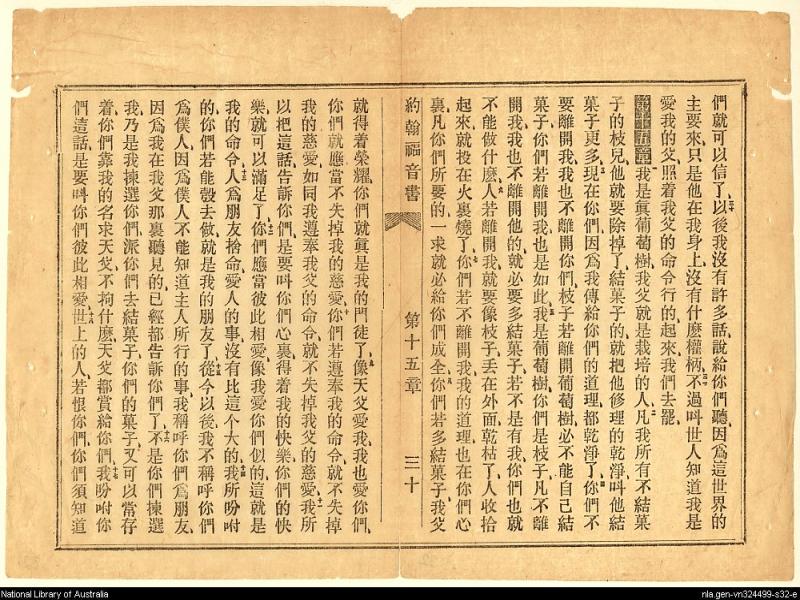 們就可以信了三十以後我沒有許多話說給你們聽因爲這世界的
主要來只是他在我身上沒有什麽權柄三十一不過叫世人知道我是
愛我的父照着我父的命令行的起來我們去罷
第十五章一我是眞葡萄樹我父就是栽培的人二凡我所有不結菓
子的枝兒他就要除掉了結菓子的就把他修理的乾淨叫他結
菓子更多三現在你們因爲我傳給你們的道理都乾淨了四你們不
要離開我我也不離開你們枝子若離開葡萄樹必不能自己結
菓子你們若離開我也是如此五我是葡萄樹你們是枝子凡不離
開我我也不離開他的就必要多結菓子若不是有我你們也就
不能做什麽六人若離開我就要像枝子丟在外面乾枯了人收拾
起來就投在火裏燒了七你們若不離開我我的道理也在你們心
裏凡你們所要的一求就必給你們成全八你們若多結菓子我父
約翰福音書 第十五章 三十
就得着榮耀你們就眞是我的門徒了九像天父愛我我也愛你們
你們就應當不失掉我的慈愛十你們若遵奉我的命令就不失掉
我的慈愛如同我遵奉我父的命令就不失掉我父的慈愛十一我所
以把這話告訴你們是要叫你們心裏得着我的快樂你們的快
樂就可以滿足了十二你們應當彼此相愛像我愛你們似的這就是
我的命令十三人爲朋友捨命愛人的事沒有比這个大的十四我所吩咐
的你們若能彀去做就是我的朋友了十五從今以後我不稱呼你們
爲僕人因爲僕人不能知道主人所行的事我稱呼你們爲朋友
因爲我在我父那裏聽見的已經都告訴你們了十六不是你們揀選
我乃是我揀選你們派你們去結菓子你們的菓子又可以常存
着你們靠我的名求天父不拘什麽天父都賞給你們十七我吩咐你
們這話是要叫你們彼此相愛十八世上的人若恨你們你們須知道
National Library of Australia
nla.gen-vn324499-s32-e